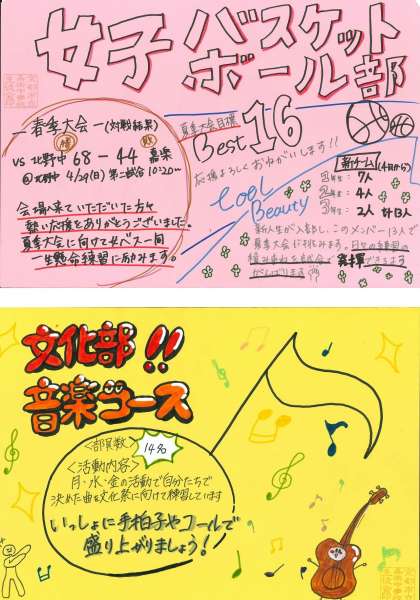 女子バスケット
ボール部
春季大会
(対戦結果)
VS 北野中 68-44 嘉楽
@北野中 4/29(日)第二試合 10:20~
会場へ来ていただいた方々
熱い応援をありがとうございました。
夏季大会に向けて女バス一同
一生懸命練習に励みます。
夏季大会目標
Best16
応援よろしくおねがいします!!
Cool
Beauty
新チーム(4日から)
1年生: 7人
2年生: 4人
3年生: 2人 計13人
新入生が入部し、このメンバー13人で
夏季大会に挑みます。日々の練習の
積み重ねを試合で発揮できるよう
がんばります
文化部!!
音楽コース
<部員数> 14名
<活動内容>
月・水・金の活動で自分たちで
決めた曲を文化祭に向けて練習しています
いっしょに手拍子やコールで
盛り上がりましょう!